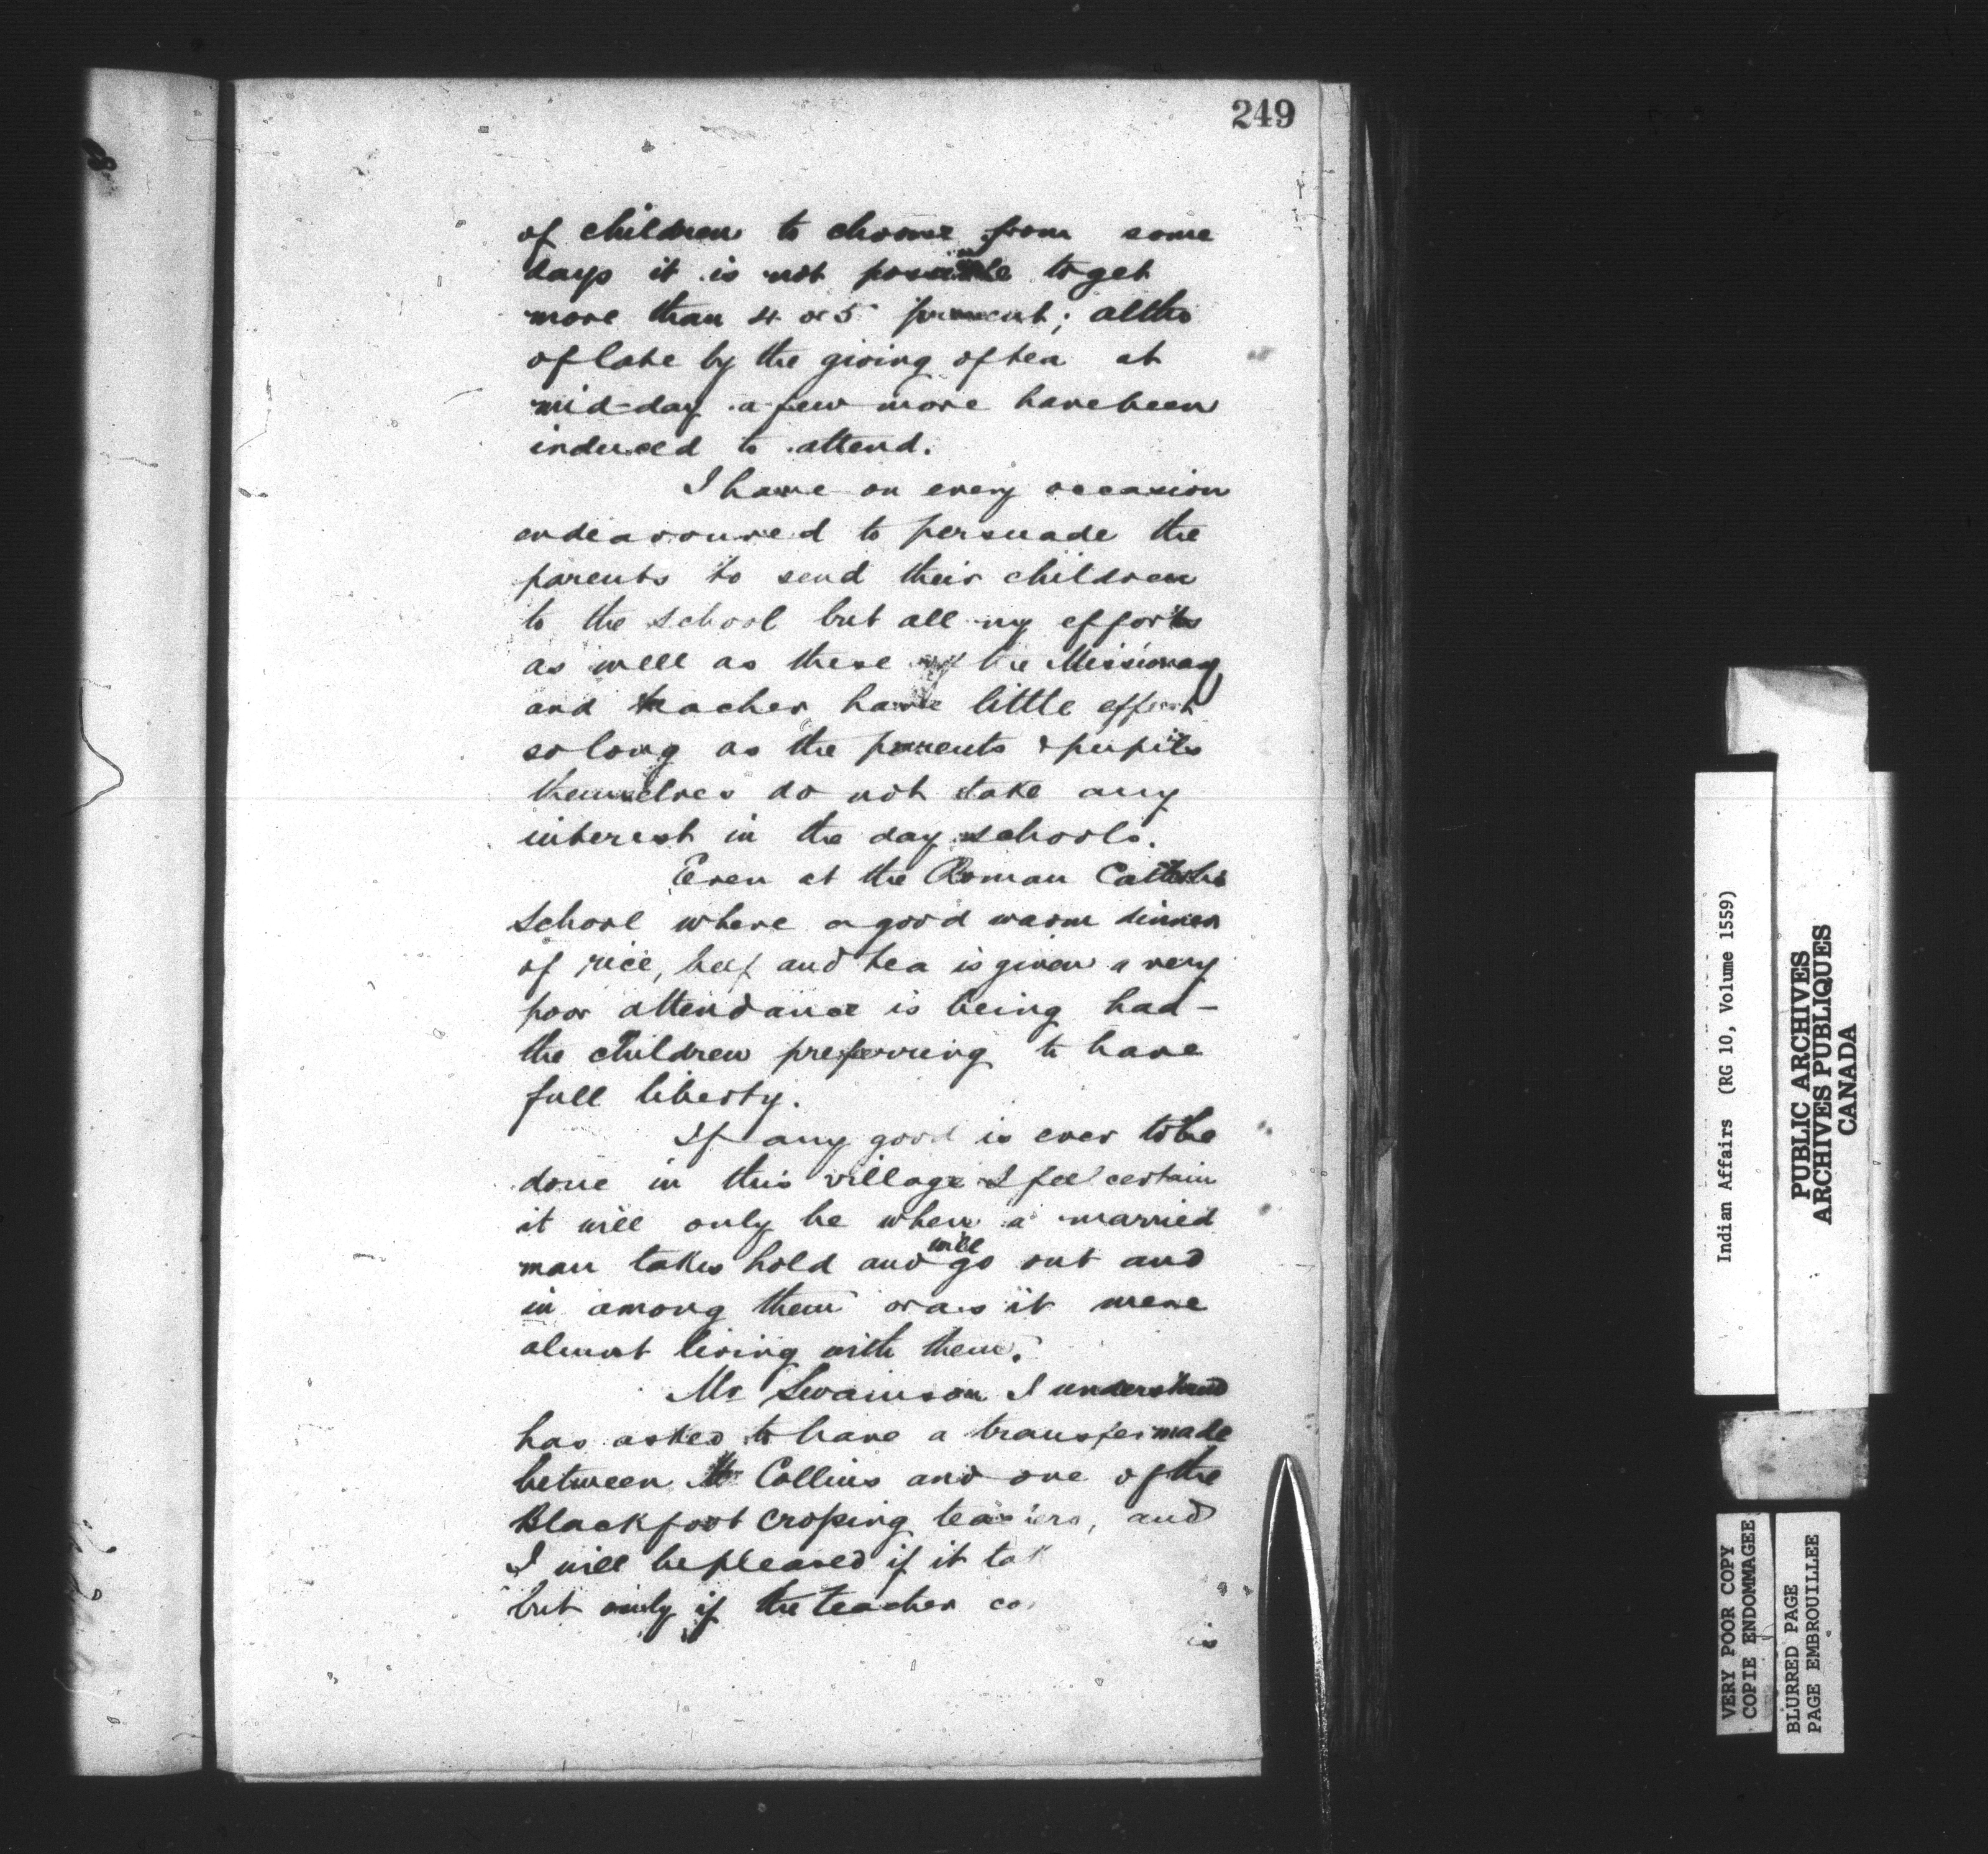 249
of children to choose from some
days it is not possible to get
more than 4 or 5 present; altho
of late by the giving of tea at
mid-day a few more have been
induced to attend.
I have on every occasion
endeavoured to persuade the
parents to send their children
to the school but all my efforts
as well as these of the Missionary
and teacher have little effect
so long as the parents & pupils
themselves do not take any
interest in the day schools.
Even at the Roman Catholic
School where a good warm dinner
of rice, beef and tea is given a very
poor attendance is being had -
the children preferring to have
full liberty.
If any good is ever to be
done in this village I feel certain
it will only be when a married
man takes hold and will go out and
in among them or as it were
almost living with them.
Mr Swainson I understand
has asked to have a transfer made
between Mr Collins and one of the
Blackfoot Croping teachers, and
I will be pleased if it tak
but only if the teacher co
is
Indian Affairs (RG 10, Volume 1559)
PUBLIC ARCHIVES
ARCHIVES PUBLIQUES
CANADA
VERY POOR COPY
COPIE ENDOMMAGEE
BLURRED PAGE
PAGE EMBROUILLEE